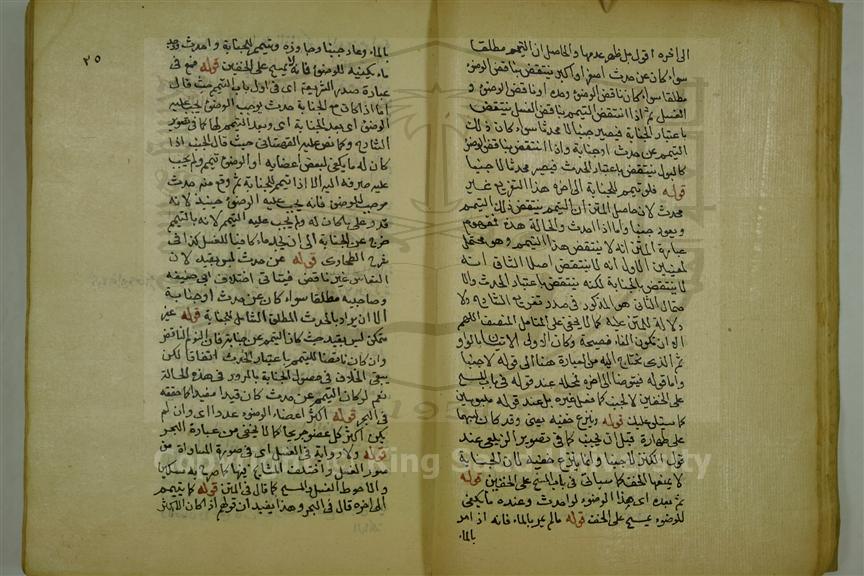 الى اخره اقول بل ظهر عدمها والحاصل ان التيمم مطلقا
سواء كان عن حدث اصغر او اكبر ينتقض بناقض الوضوء
مطلقا سواء كان ناقض الوضوء وحده او ناقض الوضوء و
الغسل ثم اذا انتقض التيمم بناقض الغسل ينتقض
باعتبار الجنابة فيصير جنبا لا محدثا سواء كان ذلك
التيمم عن حدث او جنابة واذا انتقض بناقض الوضوء
كالبول ينتقض باعتبار الحدث فيصير محدثا لا جنبا
قوله فلو تيمم للجنابة الى اخره هذا التفريع غير
محدث لان حاصل المتن ان التيمم ينتقض ذلك التيمم
ويعود جنبا واما اذا احدث والحالة هذه فمفهوم
عبارة المتن انه لا ينتقض هذا التيمم وهو محتمل
لمعنيين الاول انه لا ينتقض اصلا الثاني انه
لا ينتقض بالجنابة لكنه ينتقض باعتبار الحدث
الثاني هو المذكور في صدر تفريع الشارح ولا
دلالة للمتن عليه كما لا يخفى على المتأمل المنصف اللهم
الا ان تكون الفاء فصيحة وكان الاولى الاتيان بالواو
ثم الذي يحتاج اليه من العبارة هنا الى قوله لا جنبا
واما قوله فيتوضأ الى اخره فمحله عند قوله في باب المسح
على الخفين لا لجنب كما فعل غيره بل عند قوله ملبوسين
كما ستطلع عليه قوله وينزع خفيه يعني وقد كان لبسهما
على طهارة قبل ان يجنب كما في تصوير الزيلعي عند
قول الكنز لا جنبا وانما ينزع خفيه لان الجنابة
لا يمنعها الخف كما سيأتي في باب المسح على الخفين قوله
ثم بعده اي هذا الوضوء لو احدث وعنده ما يكفي
للوضوء يمسح على الخف قوله ما لم يمر بالماء فانه اذا مر
بالماء
٢٥
بالماء وعاد جنبا وجاوزه وتيمم للجنابة واحدث ووجد
ماء يكفيه للوضوء فانه لا يمسح على الخفين قوله مع في
عبارة صدر الشريعة اي في اول باب التيمم حيث قال
اما اذا كان مع الجنابة حدث يوجب الوضوء يجب عليه
الوضوء اي بعد الجنابة اي وبعد التيمم لها كما في تصوير
الشارح وكما نص عليه القهستاني حيث قال الجنب اذا
كان له ما يكفي لبعض اعضائه او الوضوء تيمم ولم يجب
عليه صرفه اليه الا اذا تيمم للجنابة ثم وقع منه حدث
موجب للوضوء فانه يجب عليه الوضوء حينئذ لانه
قدر على ماء كان له ولم يجب عليه التيمم لانه بالتيمم
خرج عن الجنابة الى ان يجد ماء كافيا للغسل كذا في
شرح الطحاوي قوله عن حدث لم يقيد لان
النفاس غير ناقض فيتأتى اختلاف ابي حنيفة
وصاحبيه مطلقا سواء كان عن حدث او جنابة
الا ان يراد بالحدث المطلق الشامل للجنابة قوله غير
متمكن ليس بقيد حيث كان التيمم عن جنابة فان النوم الناقض
وان كان ناقضا للتيمم باعتبار الحدث اتفاقا لكن
يبقى الخلاف في حصول الجنابة بالمرور في هذه الحالة
نعم لو كان التيمم عن حدث كان قيدا مفيدا كما حققه
في البحر قوله اكثر اعضاء الوضوء عددا اي وان لم
يكن اكثر كل عضو جريحا كما لا يخفى من عبارة البحر
قوله ولا رواية في الغسل اي في صورة المساواة من
صور الغسل واختلف المشايخ فيها كما صرح به مسكين
والاحوط الغسل والمسح كما قال في المتن قوله كما يتيمم
الى اخره قال في البحر وهذا يفيد ان قولهم اذا كان الاكثر